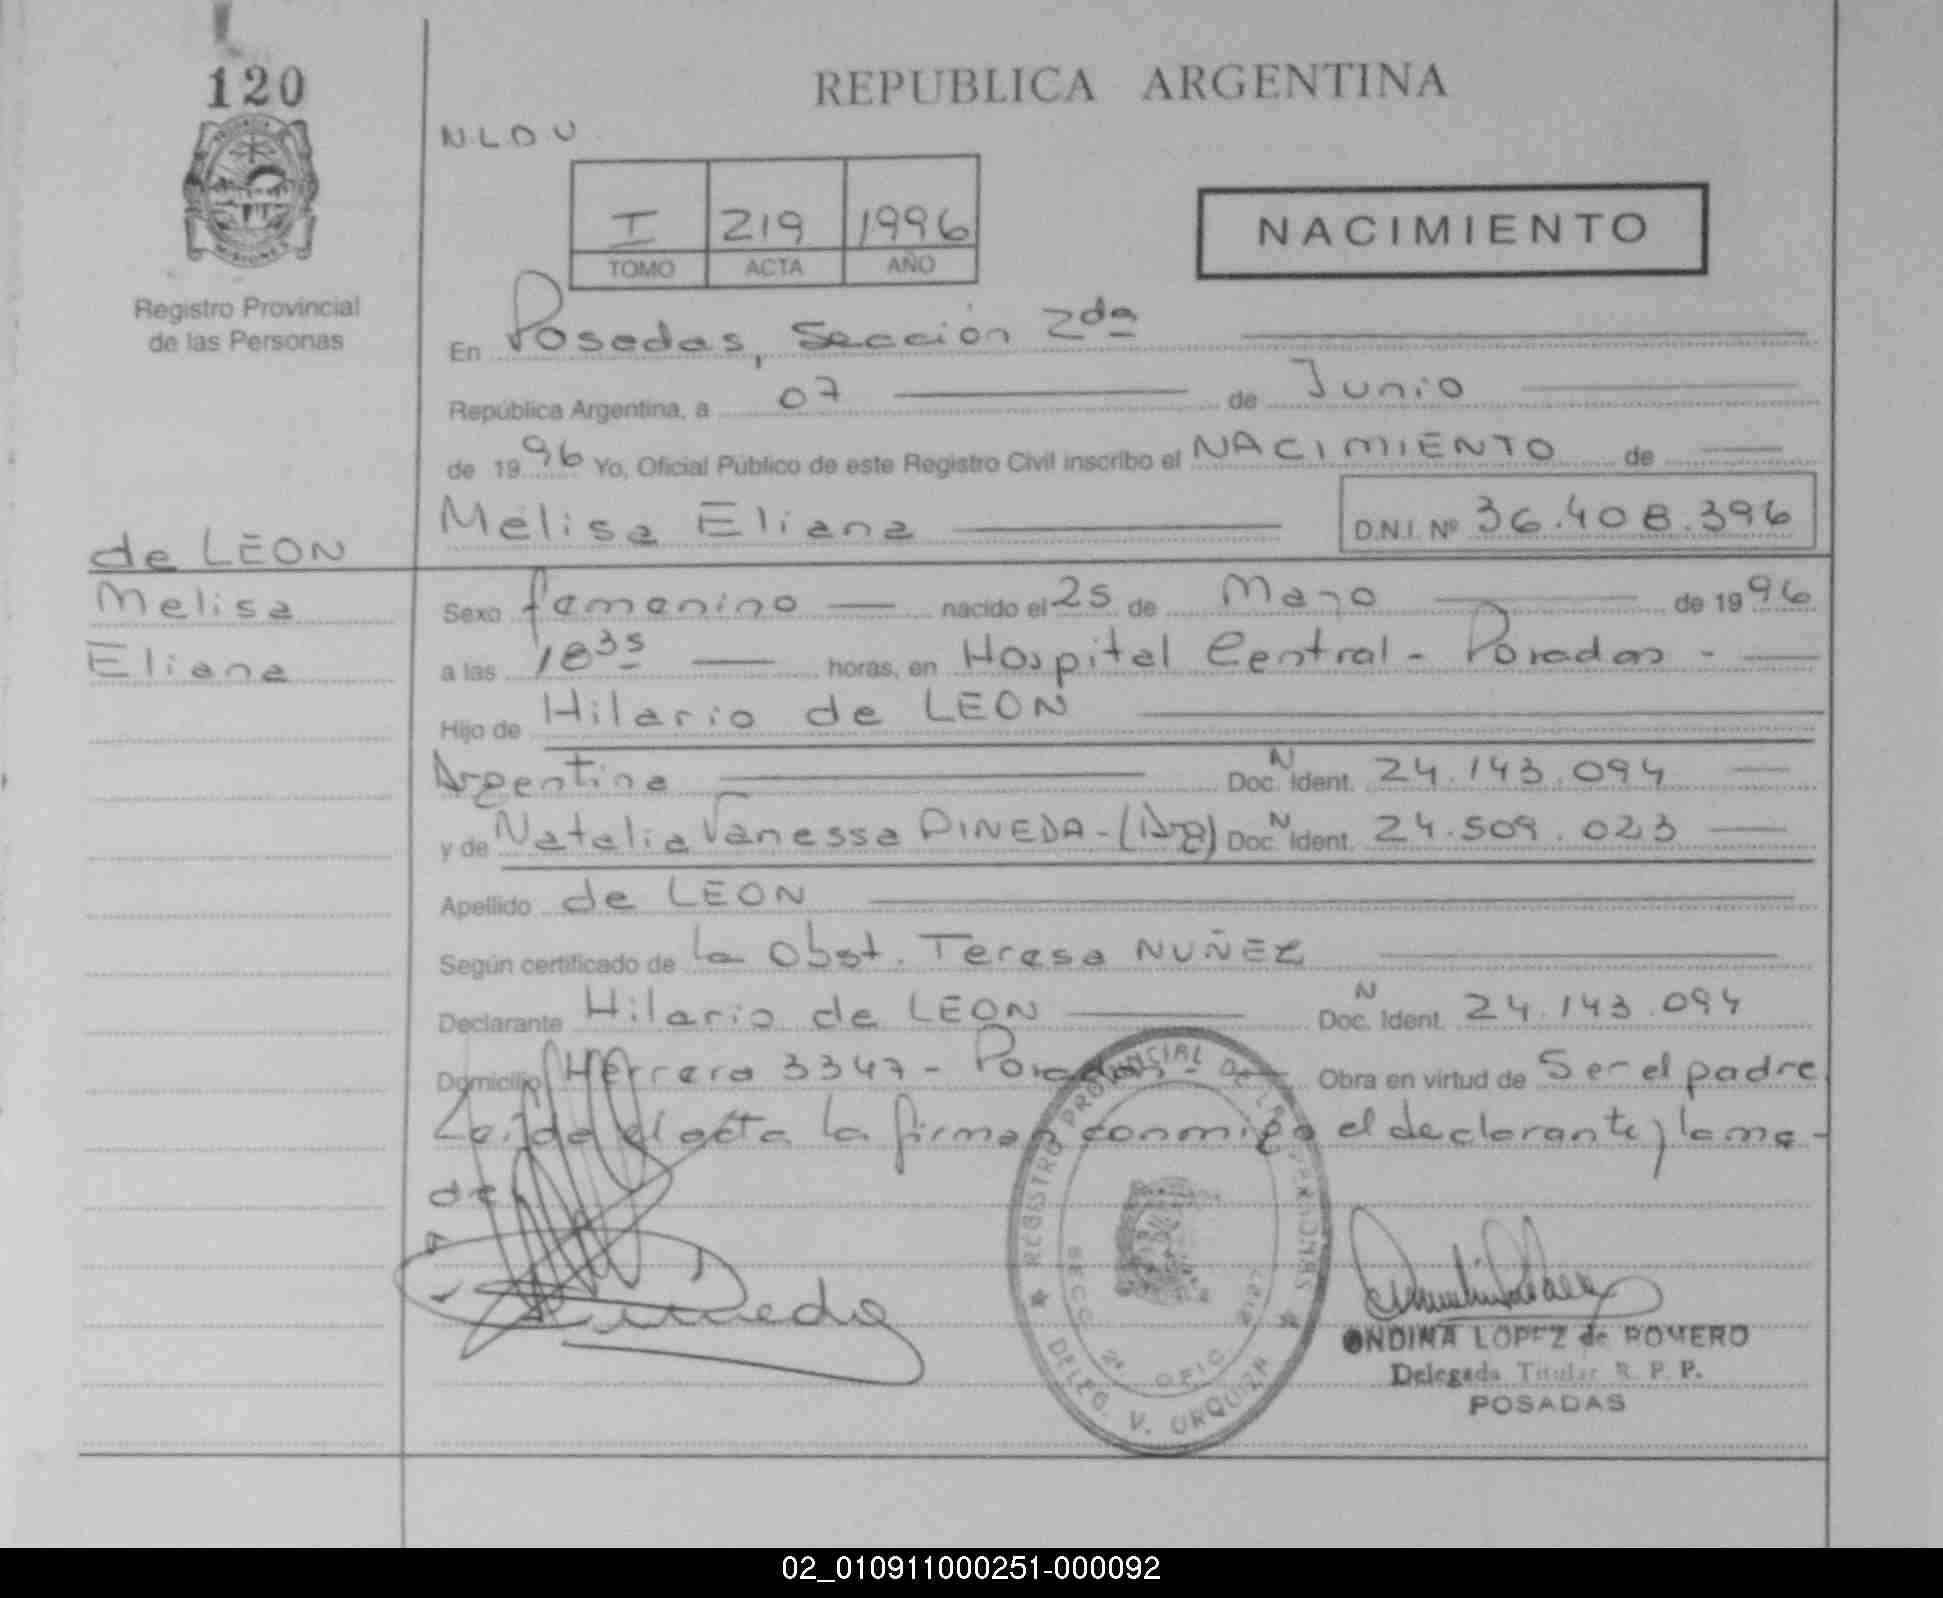 120
REPUBLICA ARGENTINA
N.L.D.U.
I 219 1996
TOMO ACTA AÑO
NACIMIENTO
PROVINCIA
MISIONES
Registro Provincial
de las Personas
En Posadas, Sección 2da
República Argentina, a 07 de Junio
de 1996 Yo, Oficial Público de este Registro Civil inscribo el NACIMIENTO de
Melisa Eliana D.N.I. Nº 36.408.396
de LEON
Melisa
Eliana
Sexo femenino nacido el 25 de Mayo de 1996
a las 18 35 horas, en Hospital Central - Posadas -
Hijo de Hilario de LEON
Argentina Doc. N Ident. 24.143.094
y de Natalia Vanessa PINEDA - (Arg) Doc. N Ident. 24.509.023
Apellido de LEON
Según certificado de la Obst. Teresa NUÑEZ
Declarante Hilario de LEON Doc. N Ident. 24.143.094
Domicilio Herrera 3347 - Posadas - Obra en virtud de Ser el padre
Leída el acta la firman conmigo el declarante y la ma-
dre
Pineda
REGISTRO PROVINCIAL DE LAS PERSONAS
SECC. 2ª OFIC.
DELEG. V. URQUIZA
ONDINA LOPEZ de ROMERO
Delegada Titular R. P. P.
POSADAS
02_010911000251-000092